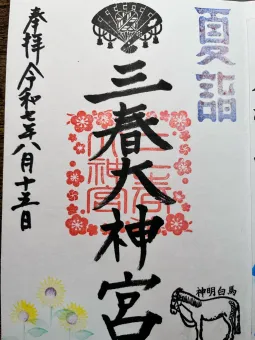 夏詣
三春大神宮
三春
大神宮
奉拝 令和七年八月十五日
神明白馬